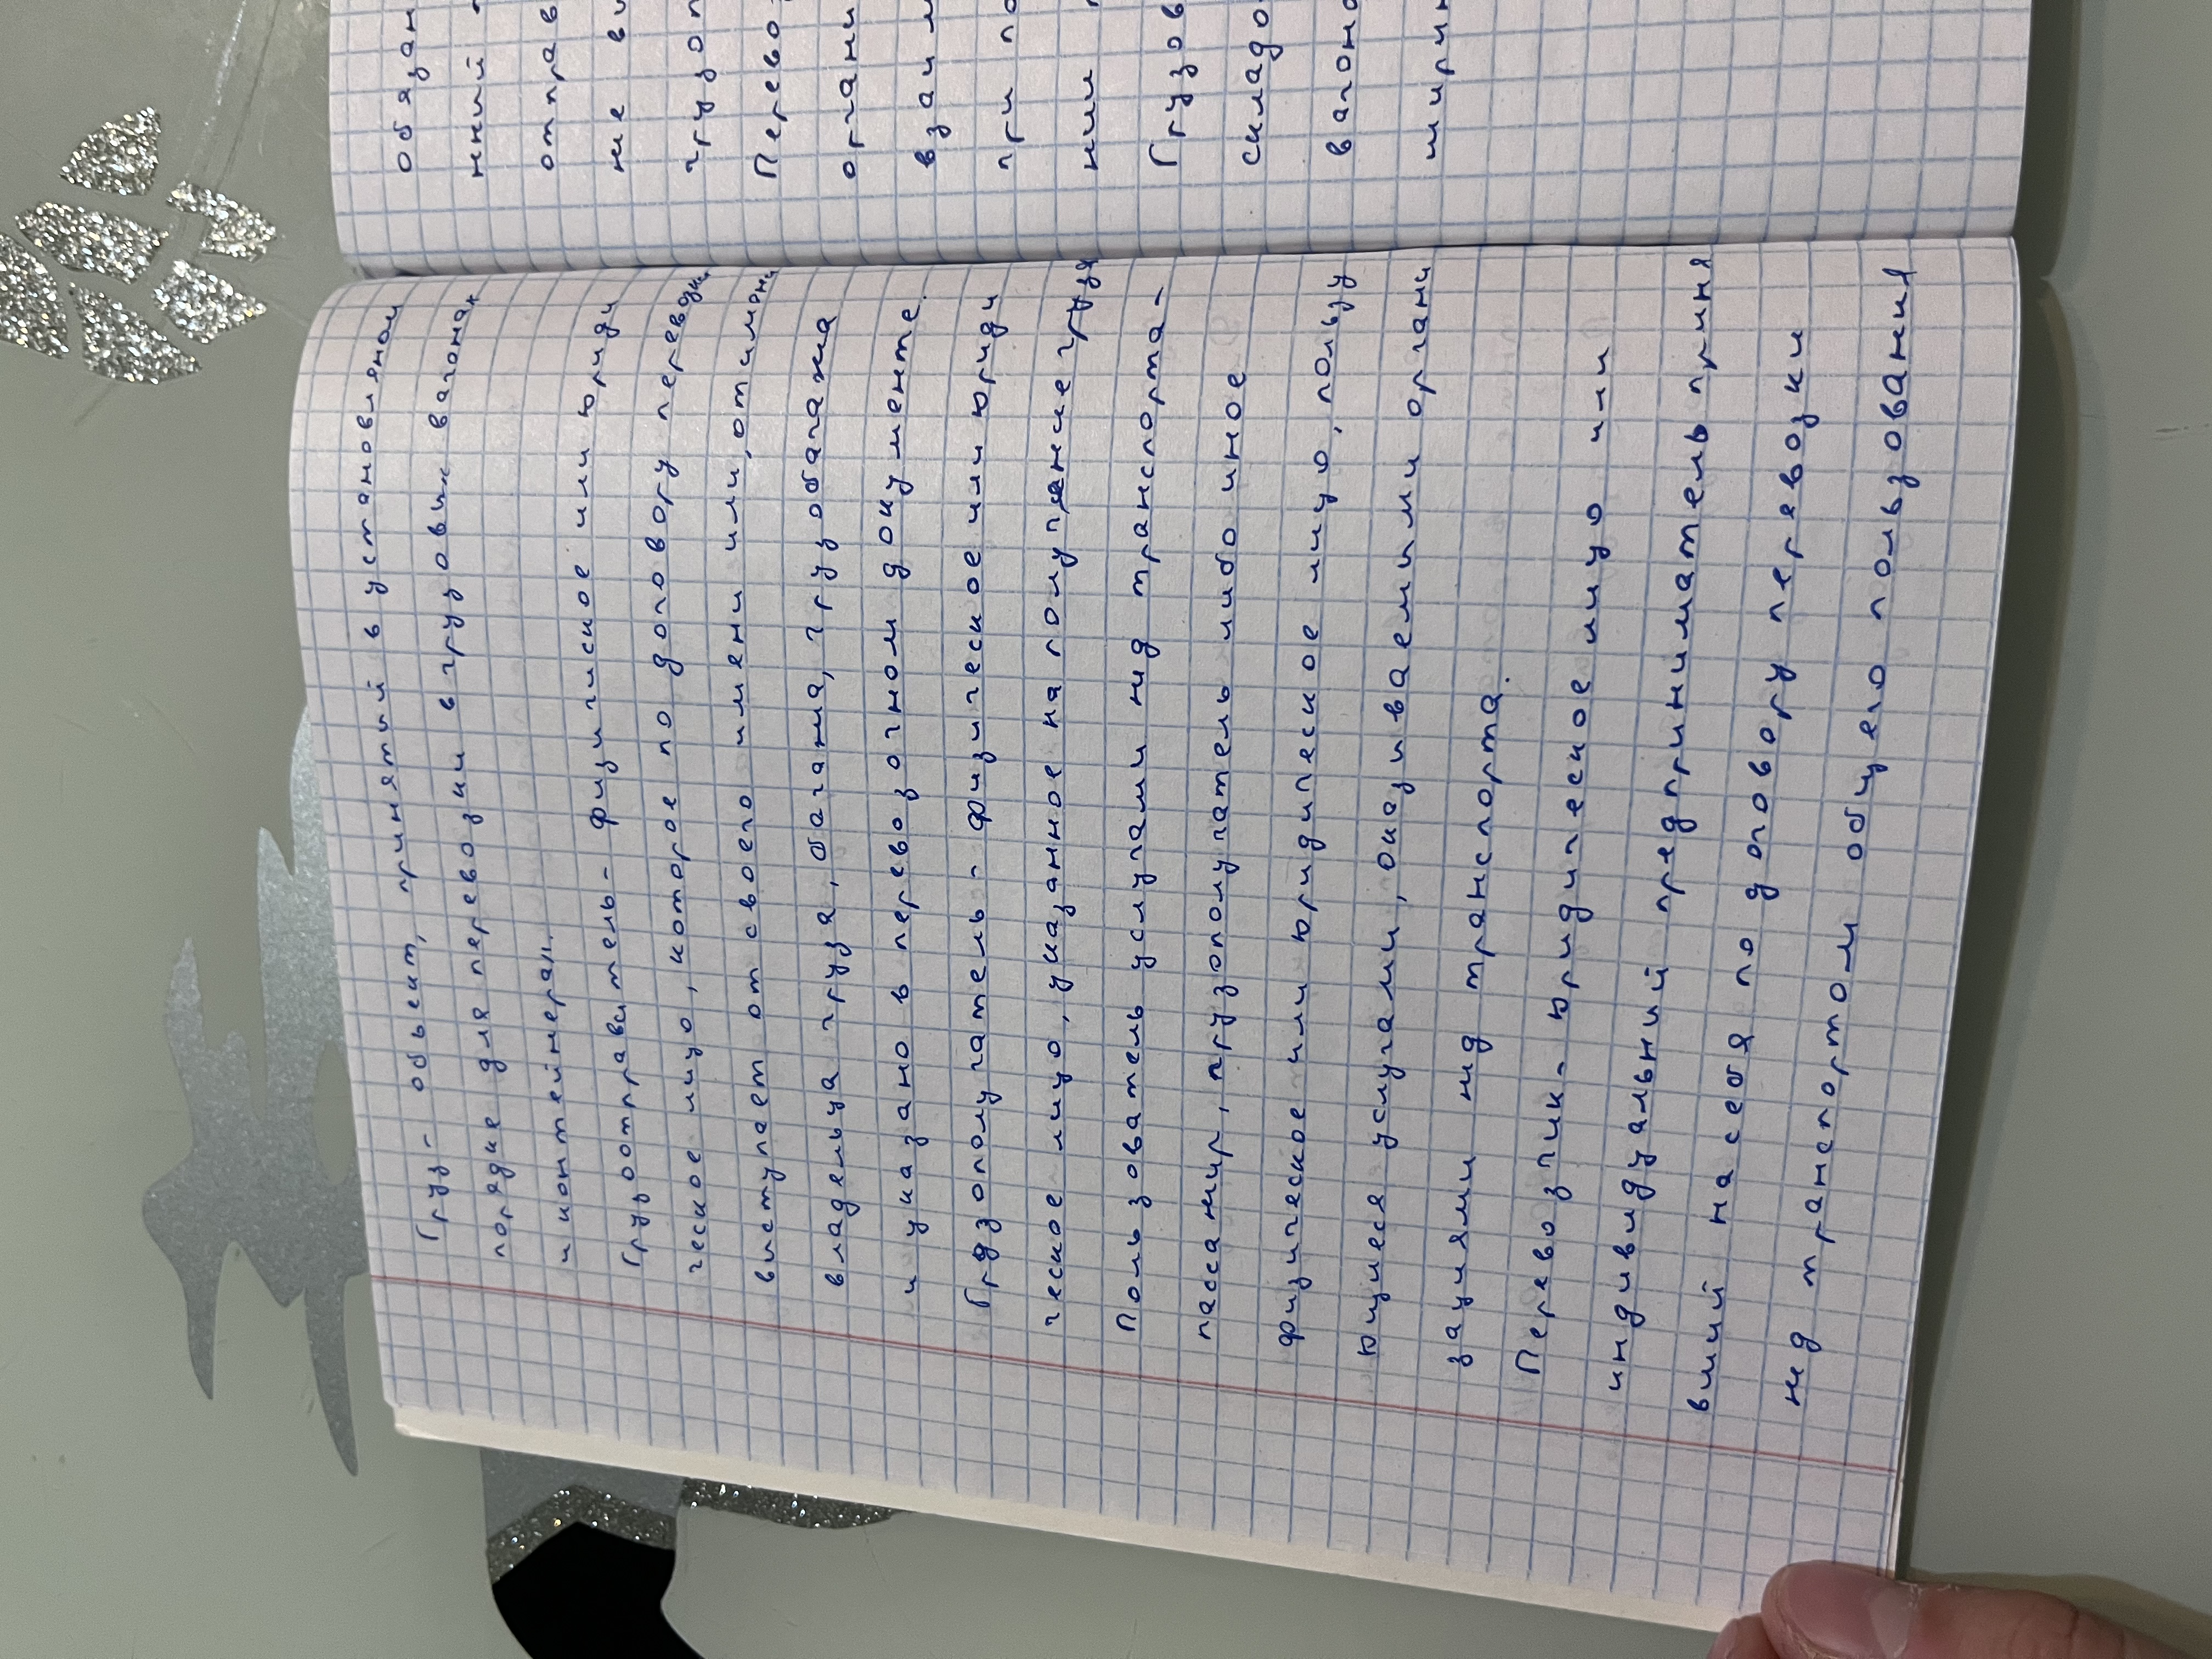 Груз - обьект, принятый в установляном
порядке для перевозки в грузовых вагонах
и контейнерах.
Грузоотправитель - физическое или юриди
ческое лицо, которое по договору перевозки
выступает от своего имени или, от имяни
владельца груза, багажа, грузобагажа
и указано в перевозочном документе.
Грузополучатель - физическое или юриди
ческое лицо, указанное на получение груза
Пользователь услугами жд транспорта -
пассажир, грузополучатель либо иное
физическое или юридическое лицо, польzу
ющиеся услугами, оказываемыми органи
зациями жд транспорта.
Перевозчик - юридическое лицо или
индивидуальный предприниматель приня
вший на себя по договору перевозки
жд транспортом общего пользования
обязан
нний -
отправ
не вы
грузоп
Перево
органи
взаим
при по
нии
Грузов
складо
вагоно
ширин